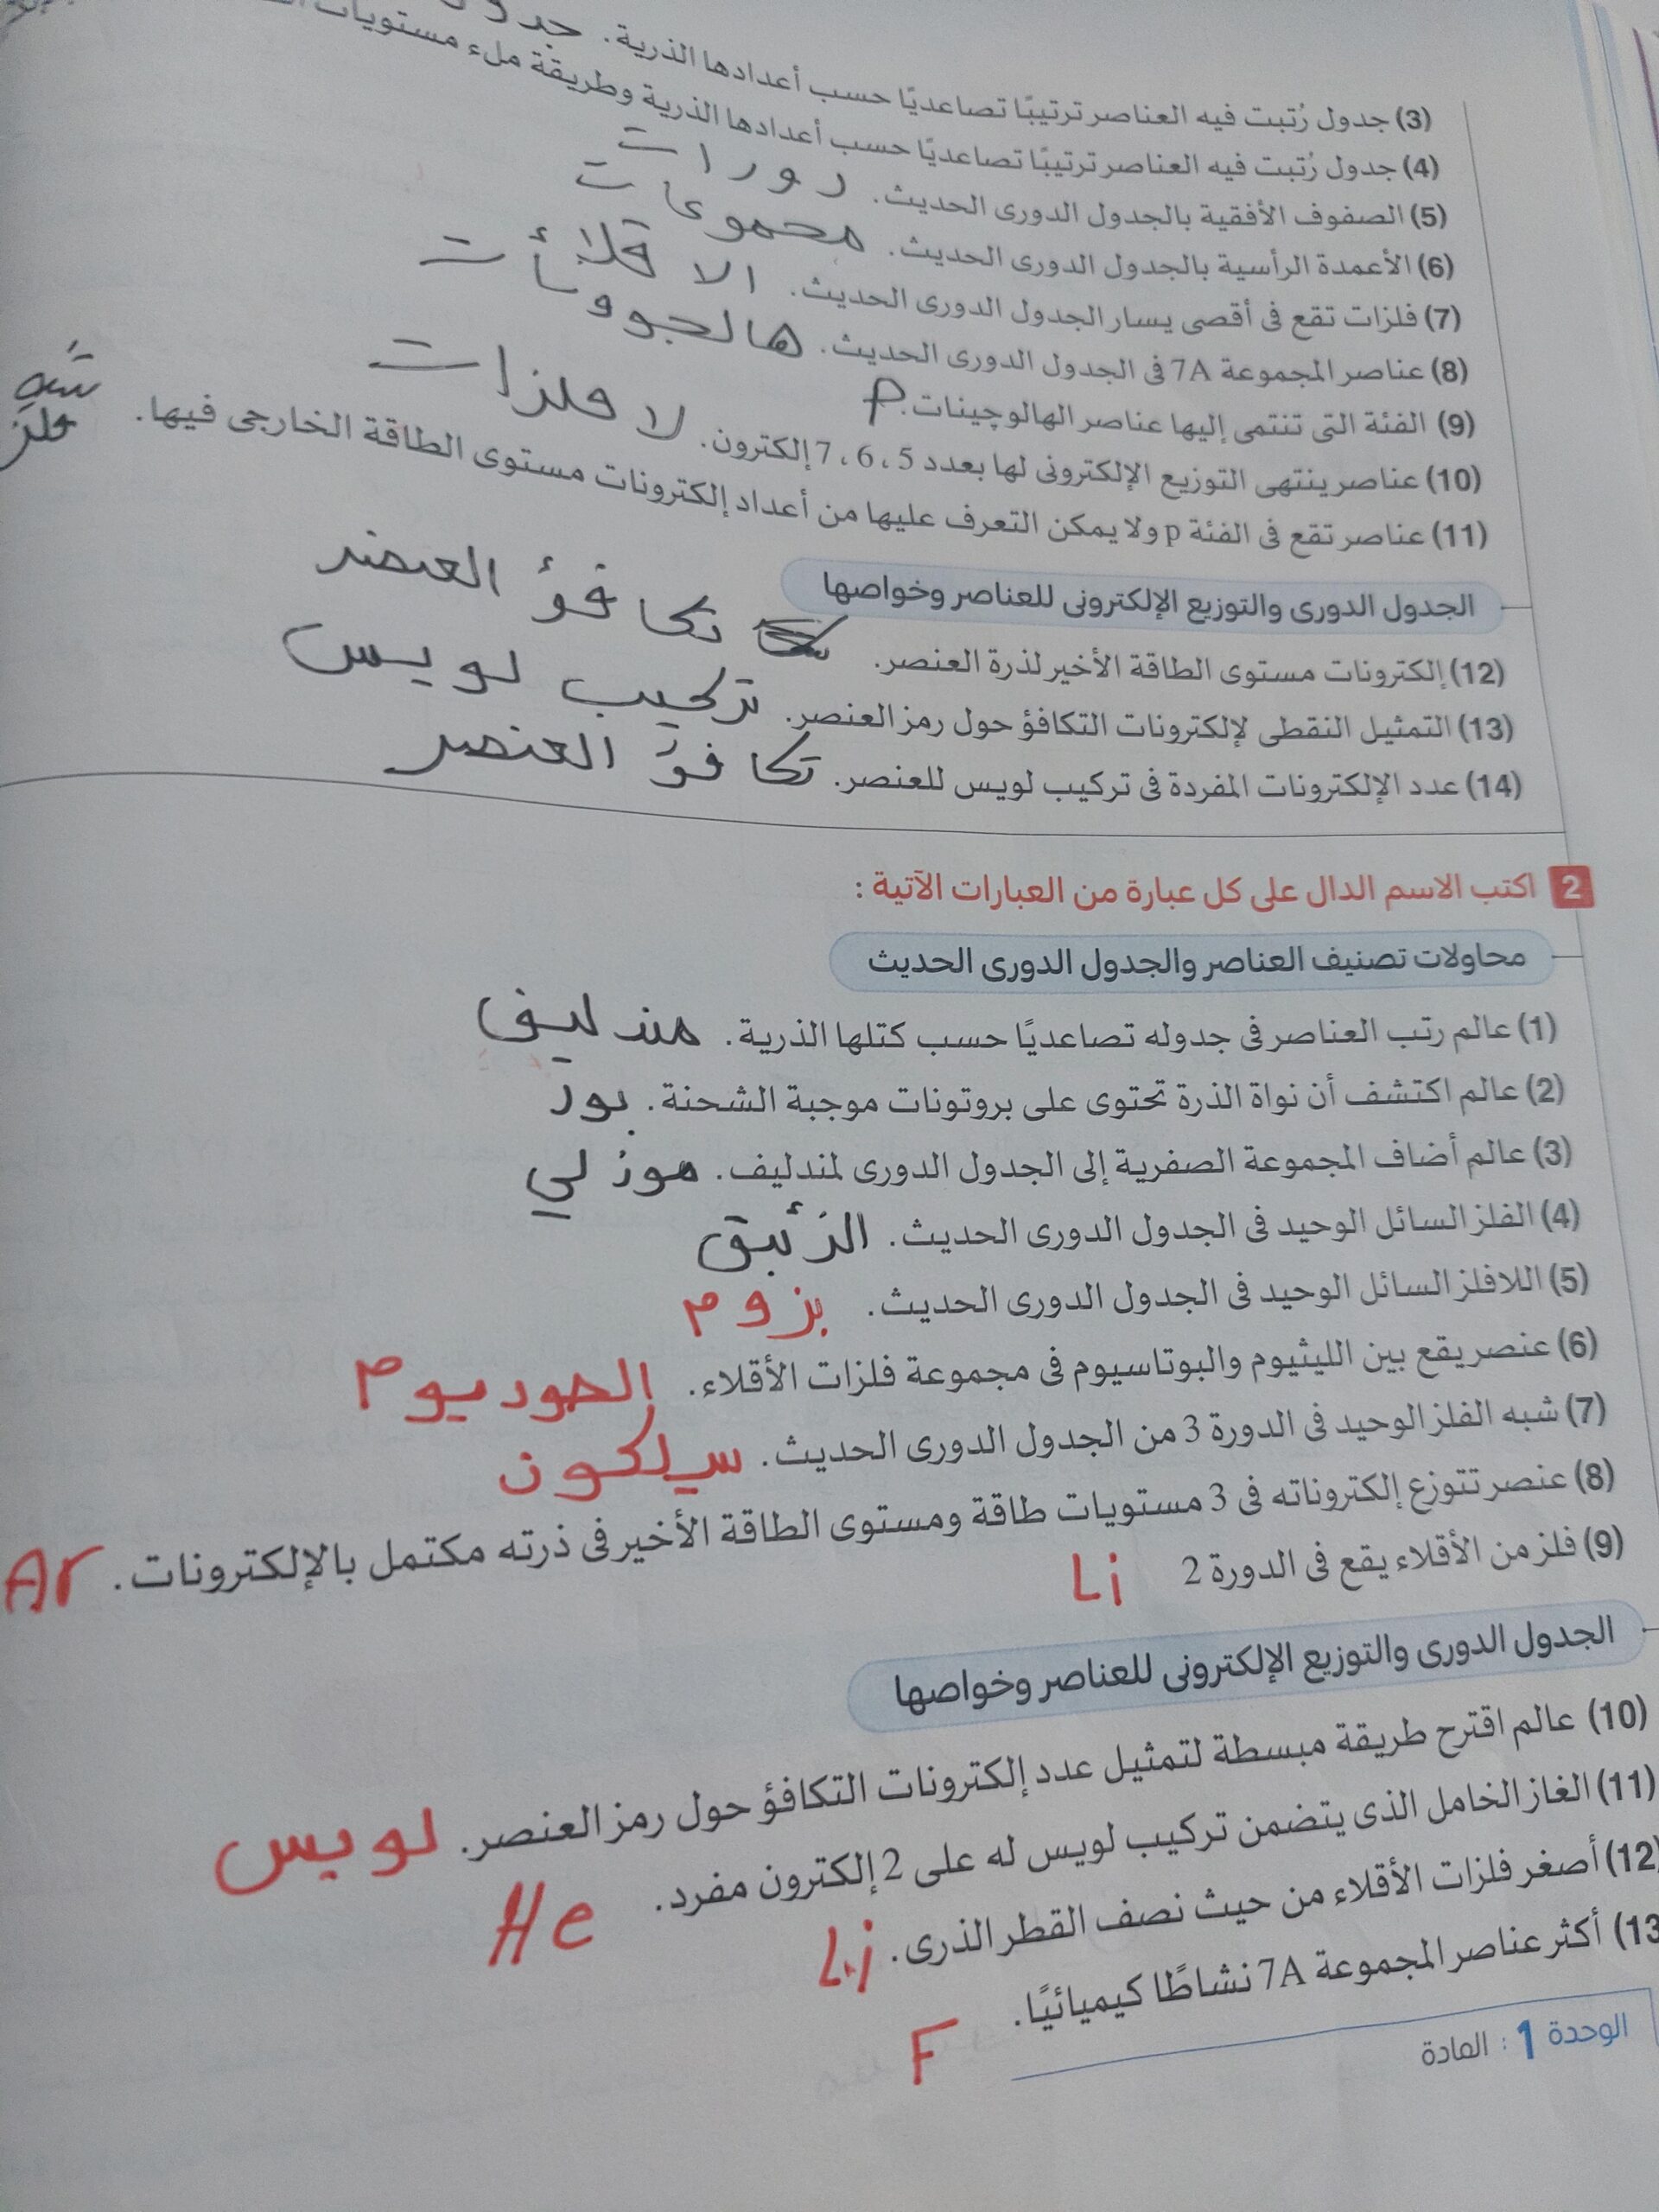 (3) جدول رُتبت فيه العناصر ترتيبًا تصاعديًا حسب أعدادها الذرية.
(4) جدول رُتبت فيه العناصر ترتيبًا تصاعديًا حسب أعدادها الذرية وطريقة ملء مستويات
(5) الصفوف الأفقية بالجدول الدورى الحديث. دورات
(6) الأعمدة الرأسية بالجدول الدورى الحديث. مجموعات
(7) فلزات تقع فى أقصى يسار الجدول الدورى الحديث. الاقلائات
(8) عناصر المجموعة 7A فى الجدول الدورى الحديث.
(9) الفئة التى تنتمى إليها عناصر الهالوچينات. P
(10) عناصر ينتهى التوزيع الإلكترونى لها بعدد 5 ، 6 ، 7 إلكترون. لا فلزات
(11) عناصر تقع فى الفئة p ولا يمكن التعرف عليها من أعداد إلكترونات مستوى الطاقة الخارجى فيها. شبه فلز
الجدول الدورى والتوزيع الإلكترونى للعناصر وخواصها
(12) إلكترونات مستوى الطاقة الأخير لذرة العنصر. تكافؤ العنصر
(13) التمثيل النقطى لإلكترونات التكافؤ حول رمز العنصر. تركيب لويس
(14) عدد الإلكترونات المفردة فى تركيب لويس للعنصر. تكافؤ العنصر
2 اكتب الاسم الدال على كل عبارة من العبارات الآتية :
محاولات تصنيف العناصر والجدول الدورى الحديث
(1) عالم رتب العناصر فى جدوله تصاعديًا حسب كتلها الذرية. مندليف
(2) عالم اكتشف أن نواة الذرة تحتوى على بروتونات موجبة الشحنة. بور
(3) عالم أضاف المجموعة الصفرية إلى الجدول الدورى لمندليف. موزلي
(4) الفلز السائل الوحيد فى الجدول الدورى الحديث. الزئبق
(5) اللافلز السائل الوحيد فى الجدول الدورى الحديث. بزوم
(6) عنصر يقع بين الليثيوم والبوتاسيوم فى مجموعة فلزات الأقلاء. الصوديوم
(7) شبه الفلز الوحيد فى الدورة 3 من الجدول الدورى الحديث. سيلكون
(8) عنصر تتوزع إلكتروناته فى 3 مستويات طاقة ومستوى الطاقة الأخير فى ذرته مكتمل بالإلكترونات. Ar
(9) فلز من الأقلاء يقع فى الدورة 2 Li
الجدول الدورى والتوزيع الإلكترونى للعناصر وخواصها
(10) عالم اقترح طريقة مبسطة لتمثيل عدد إلكترونات التكافؤ حول رمز العنصر. لويس
(11) الغاز الخامل الذى يتضمن تركيب لويس له على 2 إلكترون مفرد. He
(12) أصغر فلزات الأقلاء من حيث نصف القطر الذرى. Li
(13 أكثر عناصر المجموعة 7A نشاطًا كيميائيًا. F
الوحدة 1 : المادة